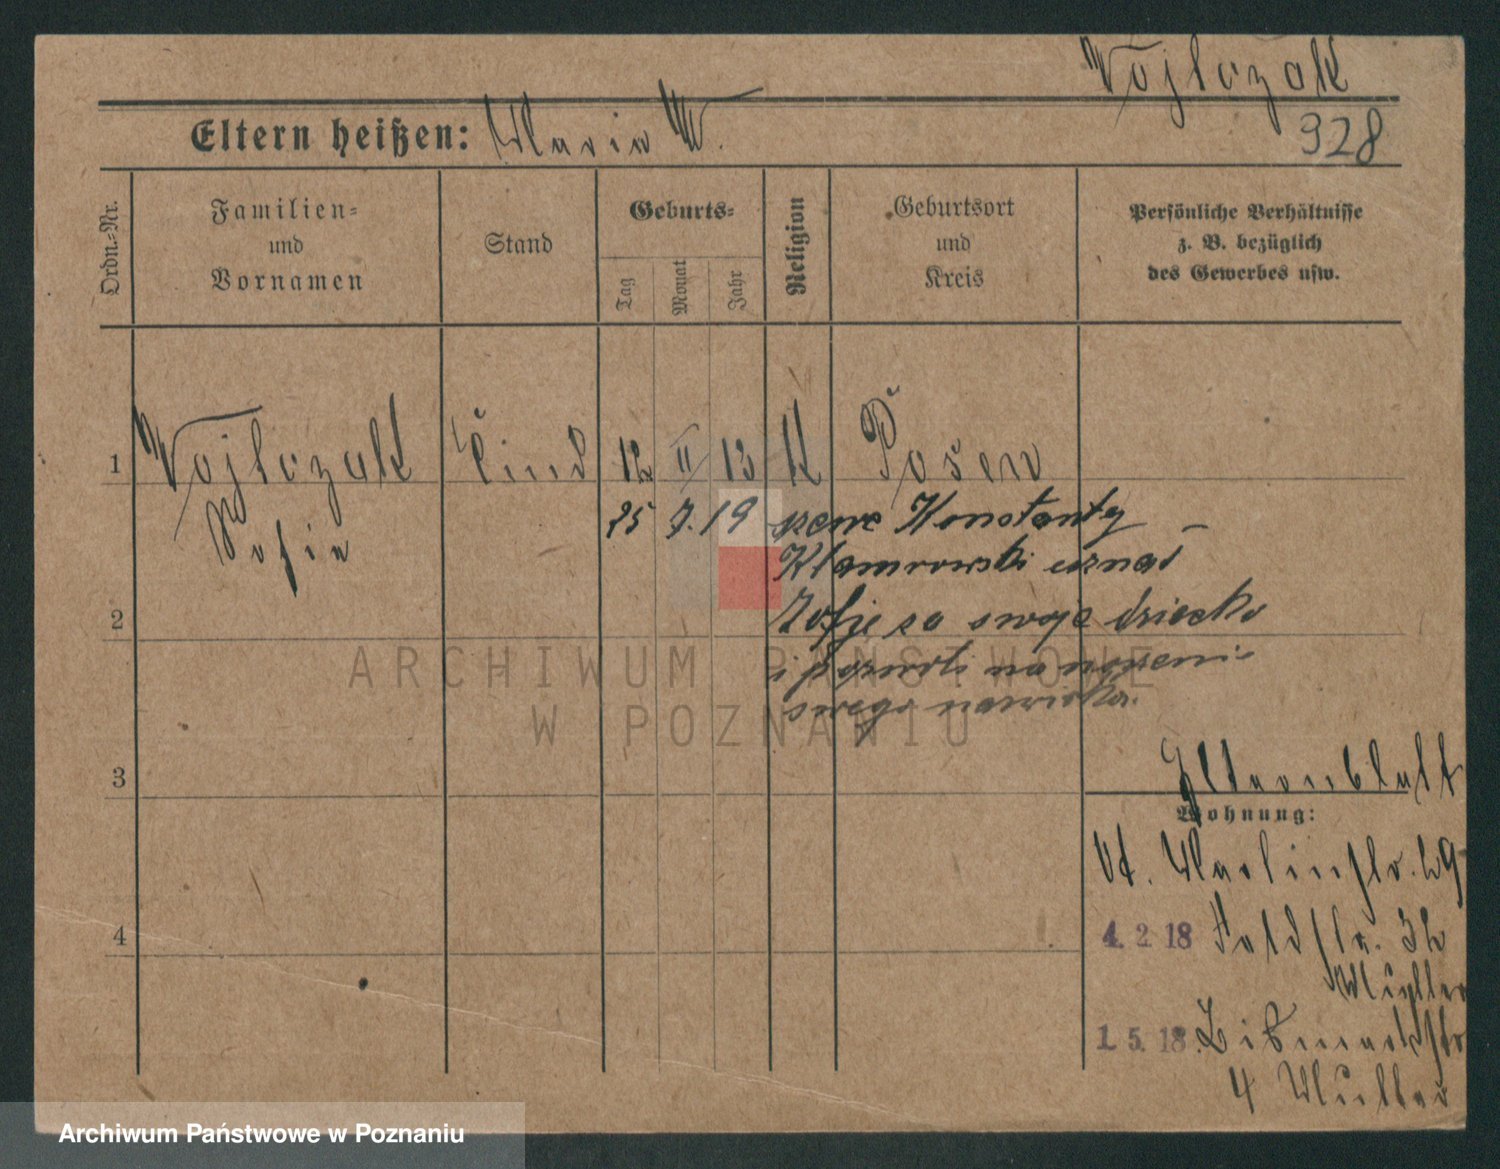 Wojtczak
Eltern heißen: Maria W.
928
Ordn.-Nr.
Familien-
und
Vornamen
Stand
Geburts-
Tag
Monat
Jahr
Religion
Geburtsort
und
Kreis
Persönliche Verhältnisse
z. B. bezüglich
des Gewerbes usw.
1 Wojtczak Kind 12 II 13 K Posen
Sofie
25 7. 19 Konstanty –
uznał
2 Zofję za swoje dziecko
i na noszenie
swego nazwiska.
3
Elternblatt
Wohnung:
29
4
4. 2. 18 Feldstr. 32
Mutter
1. 5. 18. Bismarckstr
4 Mutter
ARCHIWUM PAŃSTWOWE
W POZNANIU
Archiwum Państwowe w Poznaniu